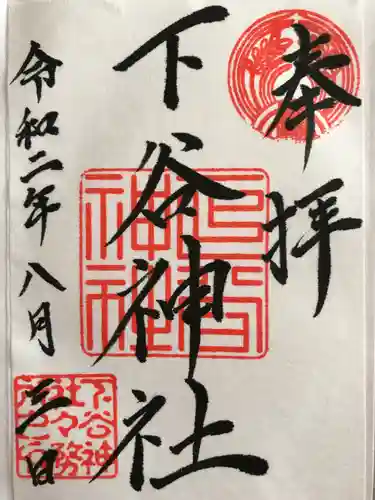 奉拝
下谷神社
令和二年八月三日
下谷神社
下谷神
社々務